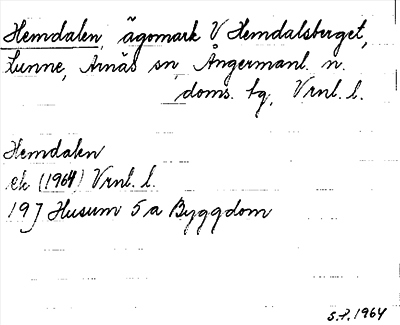 Hemdalen, ägomark V Hemdalsberget,
Lunne, Arnäs sn, Ångermanl. n.
doms. tg, Vrnl. l.
Hemdalen
ek (1964) Vrnl. l.
19J Husum 5a Byggdom
S.P. 1964